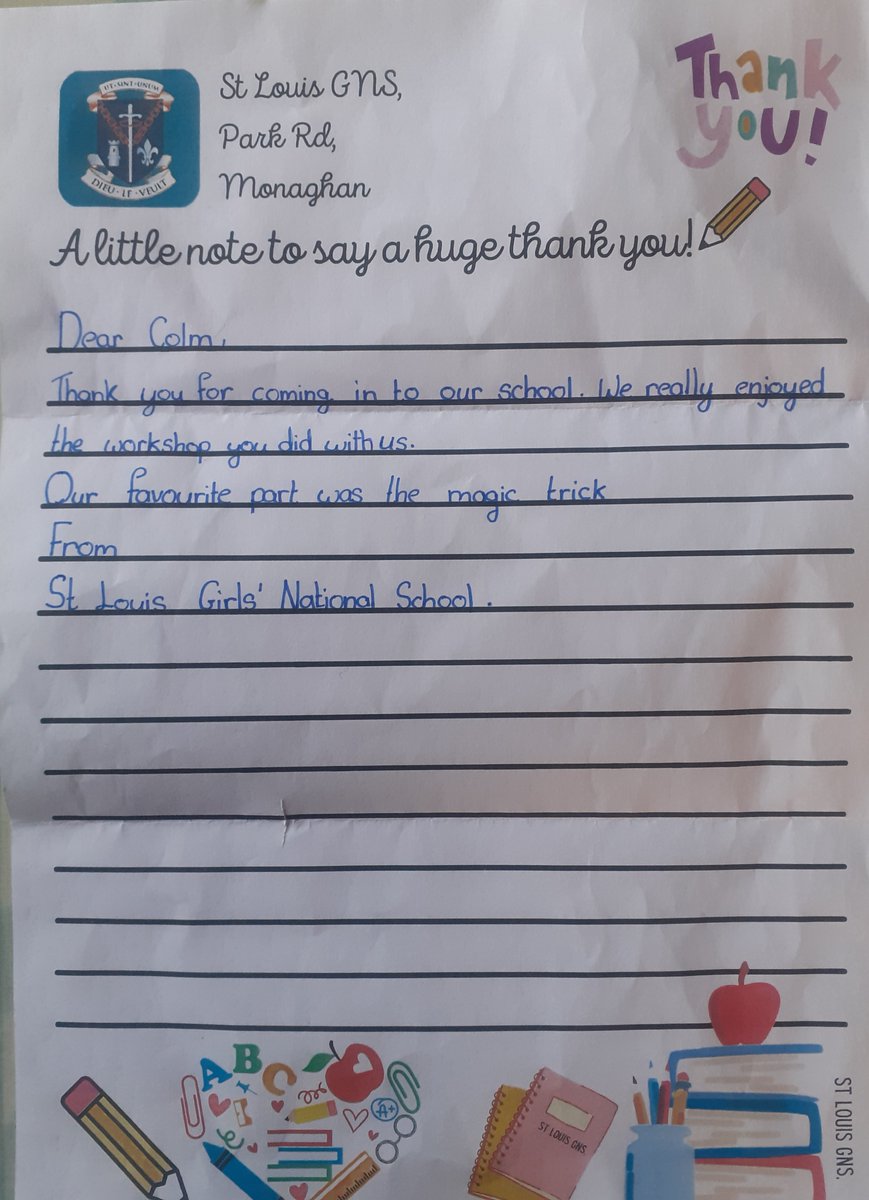 UT·SINT·UNUM
DIEU·LE·VEULT
St Louis GNS,
Park Rd,
Monaghan
Thank
you!
A little note to say a huge thank you!
Dear Colm,
Thank you for coming in to our school. We really enjoyed
the workshop you did with us.
Our favourite part was the magic trick
From
St Louis Girls' National School.
A B C
A+
ST LOUIS GNS.
ST LOUIS GNS.